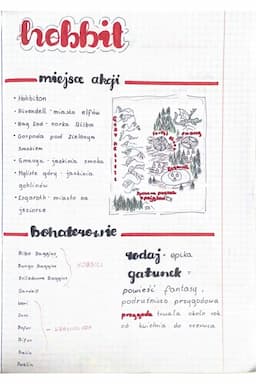 hobbit
miejsce akcji
• Hobbiton
• Rivendell - miasto elfów
• Bag End - norka Bilba
• Gospoda pod Zielonym
smokiem
• Smauga - jaskinia smoka
• Mgliste góry - jaskinia
goblinów
• Esgaroth - miasto na
jeziorze
bohaterowie
Bilbo Baggins
Bungo Baggins
Belladonna Baggins
HOBBICI
Gandalf
Dori
Bofur
Bifur
Balin
Dwalin
rodzaj - epika
gatunek -
powieść fantasy,
podróżniczo przygodowa
przygoda trwała około rok
od kwietnia do czerwca